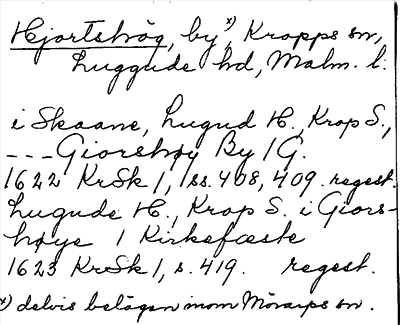 Hjortshög, by x), Kropps sn,
Luggude hd, Malm. l.
i Skaane, Lugud H., Krop S.,
--- Giorshøy By 1 G.
1622 KrSk 1, ss. 408, 409. regest.
Lugude H., Krop S. i Giors-
høye 1 Kirkefæste
1623 KrSk 1, s. 419. regest.
x) delvis belägen inom Mörarps sn.